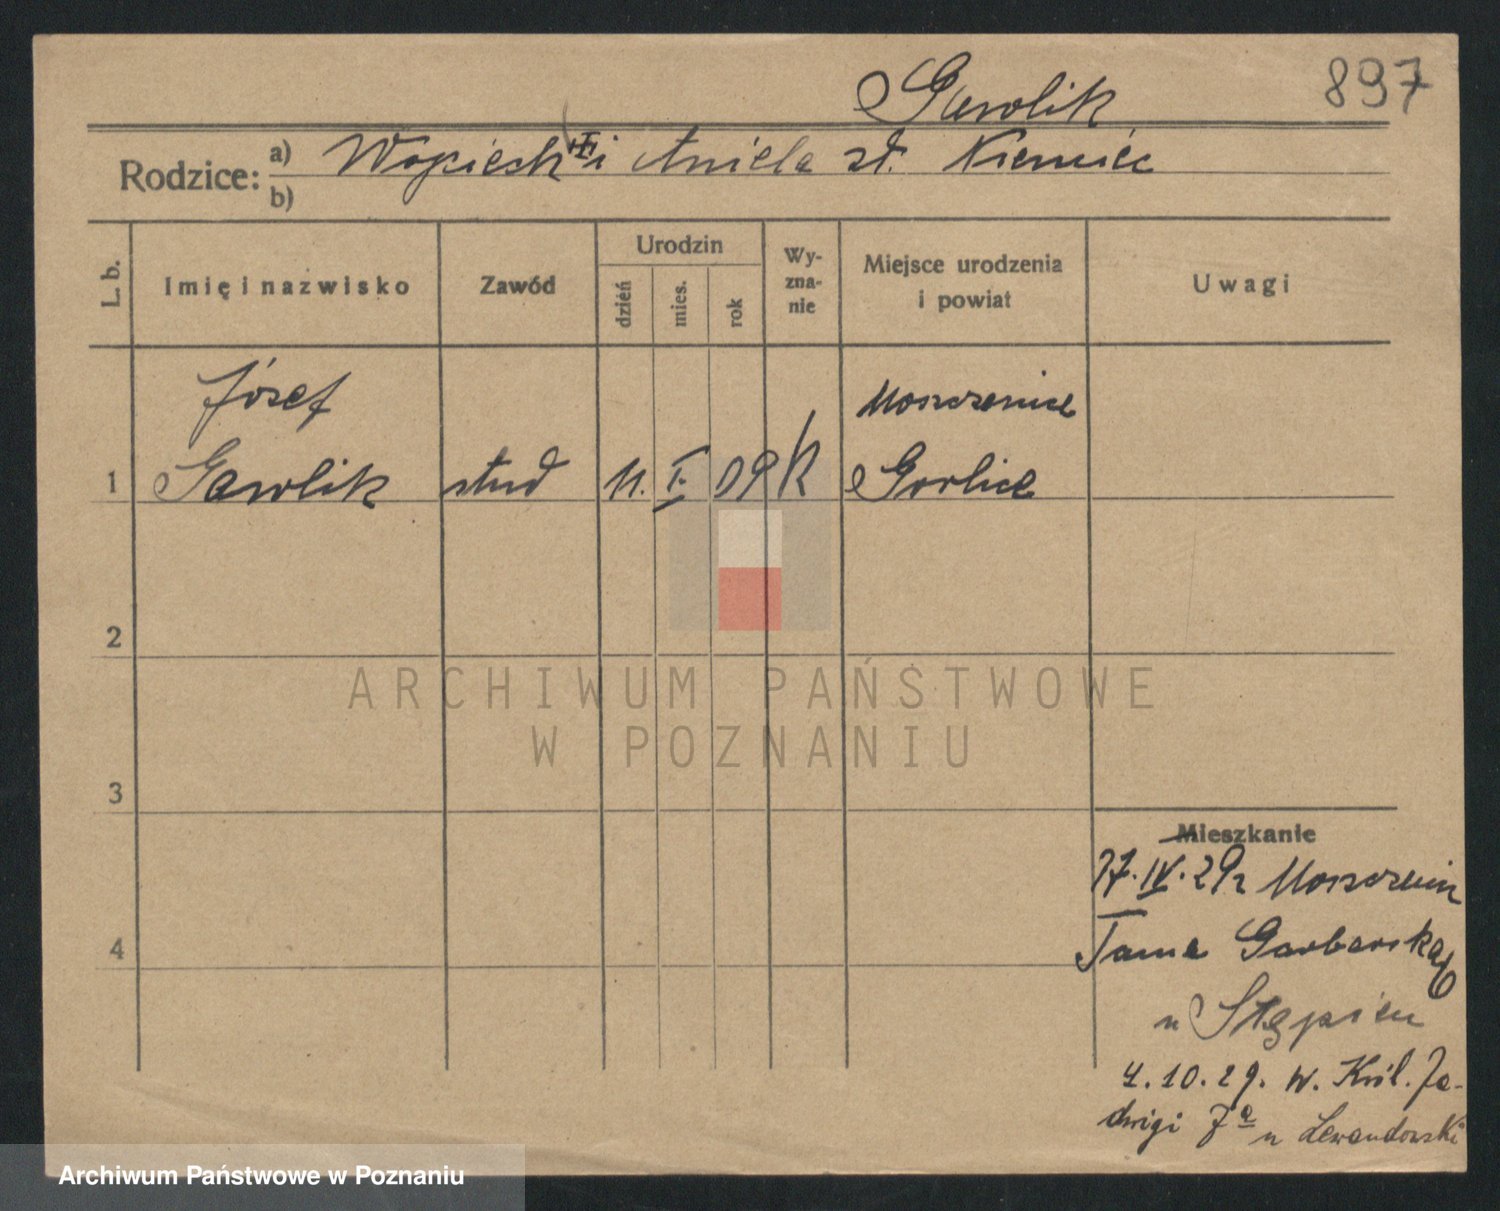 Gawlik 897
Rodzice: a) Wojciech i Aniela st. Niemiec
b)
L. b. Imię i nazwisko Zawód Urodzin dzień mies. rok Wyznanie Miejsce urodzenia i powiat Uwagi
Józef Moszczenice
1 Gawlik stud 11. I. 09 K Gorlice
2
ARCHIWUM PAŃSTWOWE
W POZNANIU
3
Mieszkanie
17. IV. 29 z Moszczenin
4 Tama Garbarska
u Stępień
4. 10. 29. W. Król. Ja-
dwigi 7a u Lewandowski
Archiwum Państwowe w Poznaniu